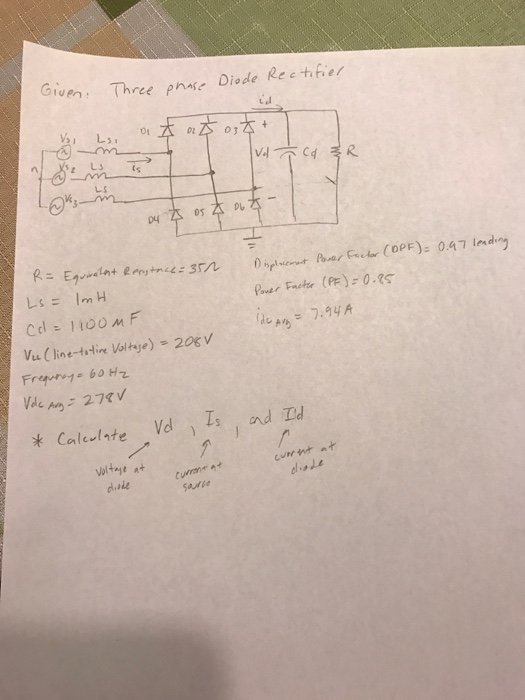 Given: Three phase Diode Rectifier
id
D1 D2 D3 +
Vs1 Ls1
n Vs2 Ls is Vd Cd R
Vs3 Ls
D4 D5 D6 -
R = Equivalent Resistance = 35Ω
Ls = 1mH
Cd = 1100 MF
VLL (line-to-line Voltage) = 208V
Frequency = 60 Hz
Vdc Avg = 278V
Displacement Power Factor (DPF) = 0.97 leading
Power Factor (PF) = 0.85
idc Avg = 7.94A
* Calculate Vd, Is, and Id
voltage at diode
current at source
current at diode